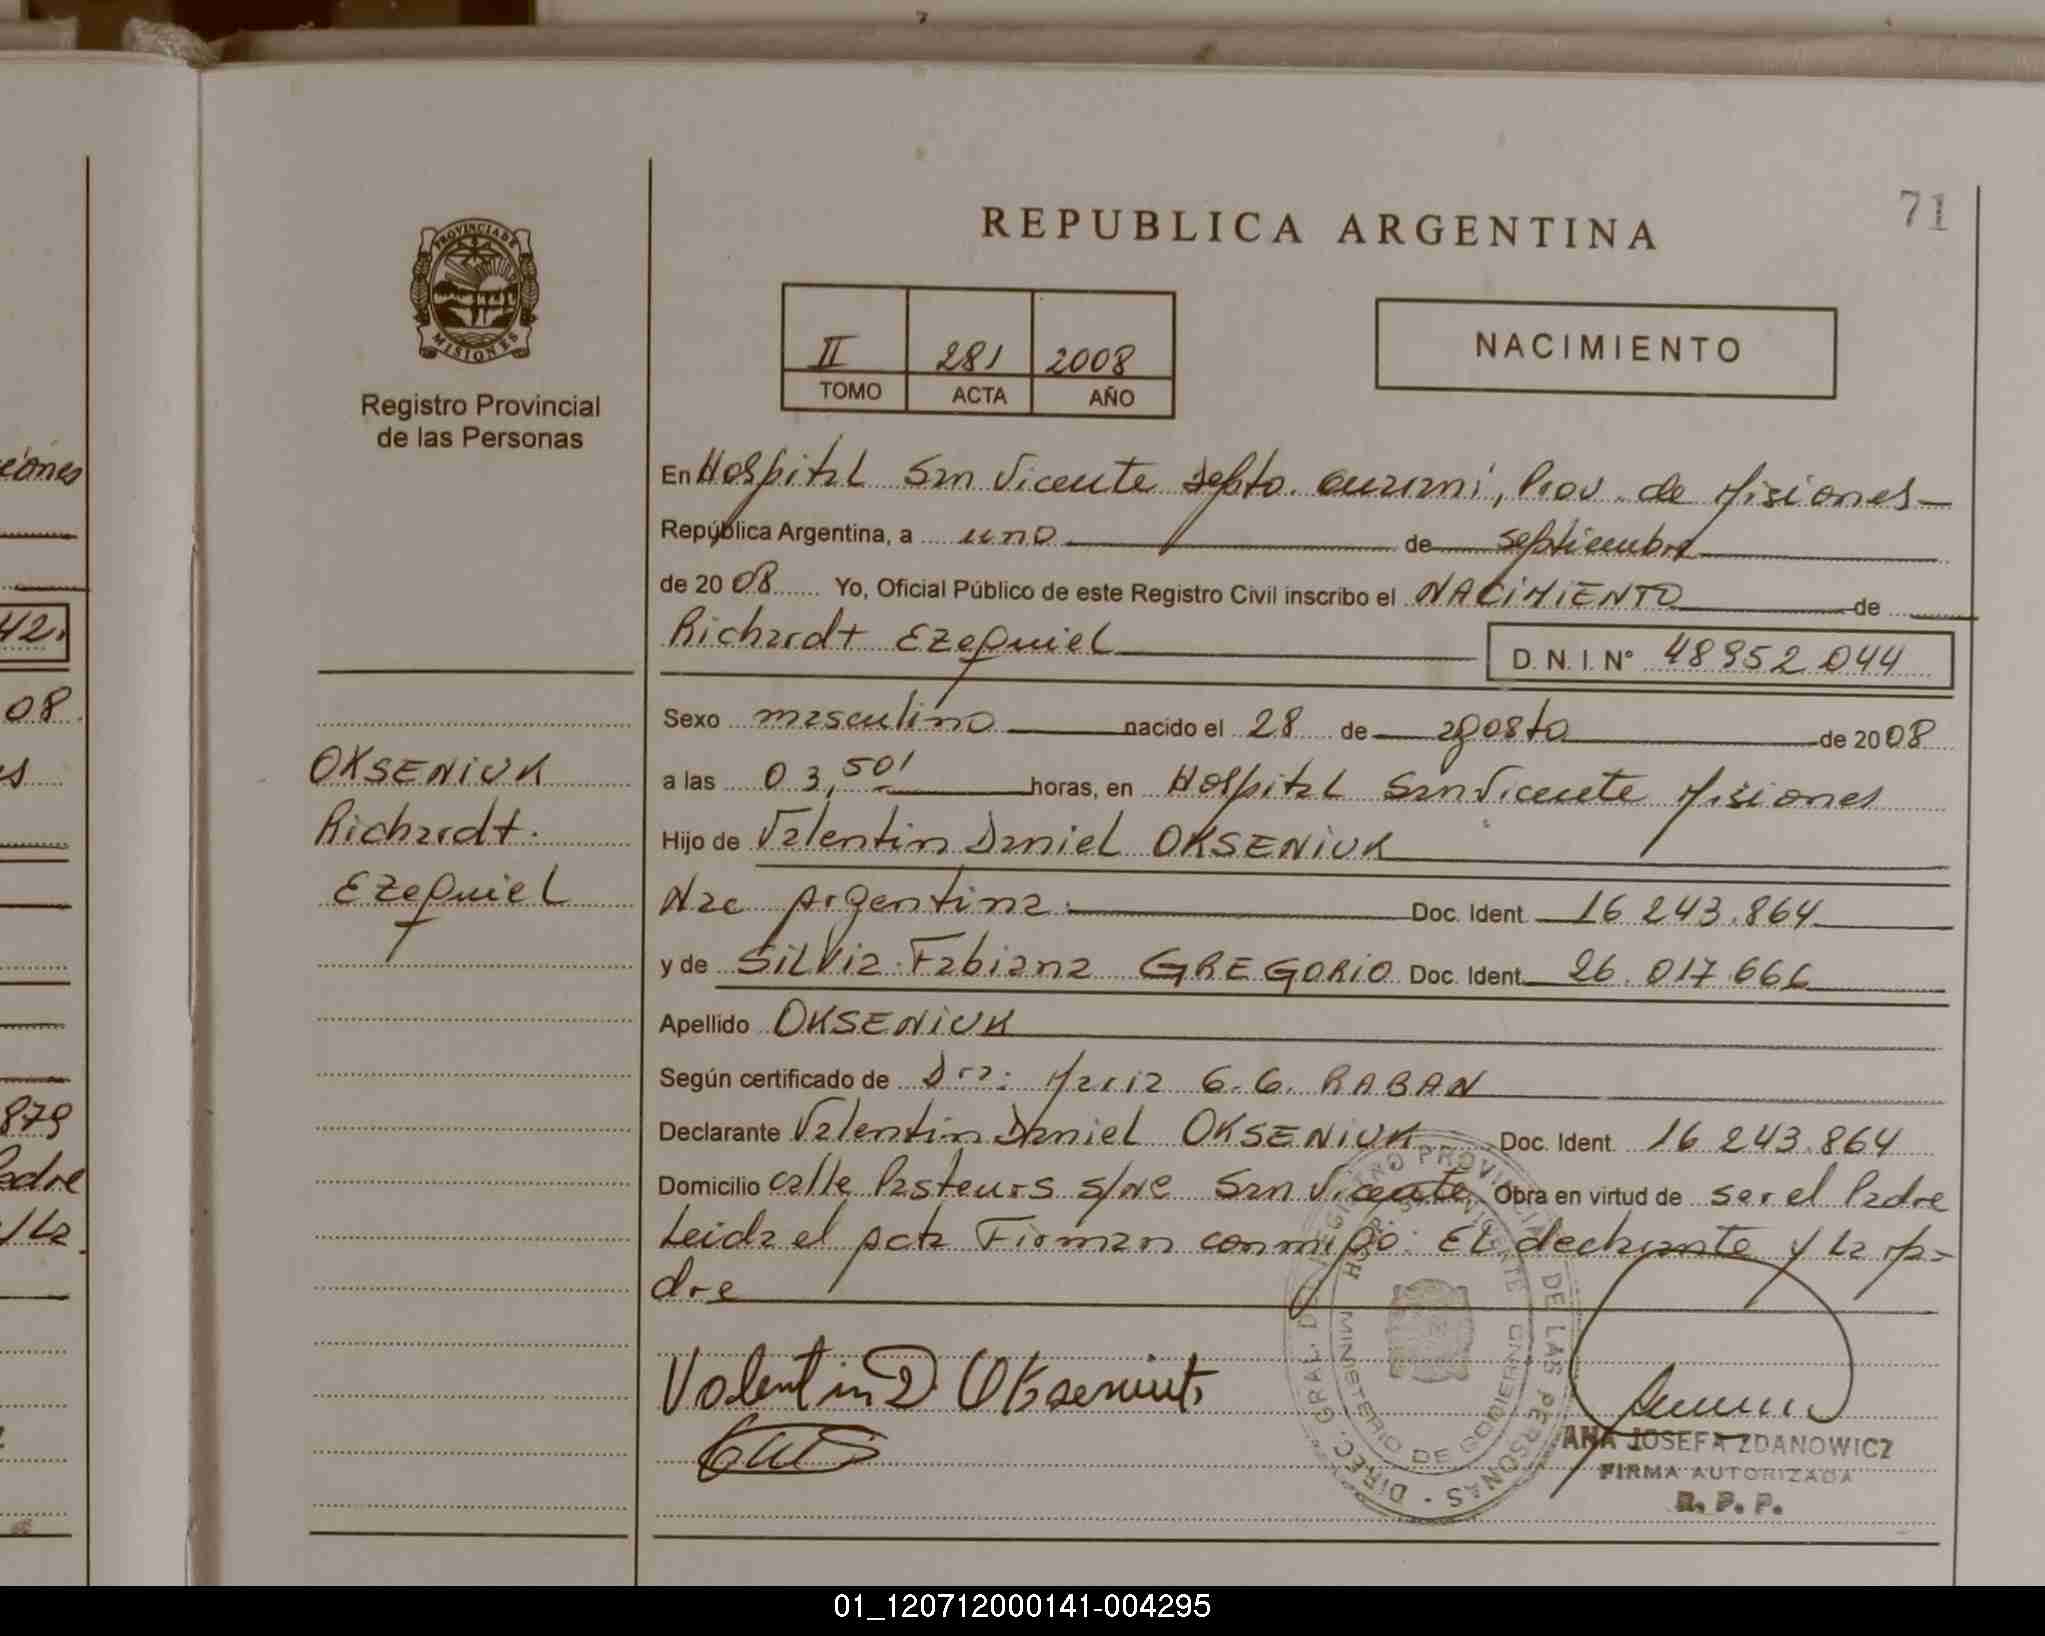 71
REPUBLICA ARGENTINA
PROVINCIA DE
MISIONES
Registro Provincial
de las Personas
II 281 2008
TOMO ACTA AÑO
NACIMIENTO
En Hospital San Vicente Depto. Guaraní, Prov. de Misiones
República Argentina, a uno de septiembre
de 2008 Yo, Oficial Público de este Registro Civil inscribo el NACIMIENTO de
Richardt Ezequiel D. N. I. N° 48952044
Sexo masculino nacido el 28 de agosto de 2008
a las 03,50' horas, en Hospital San Vicente Misiones
Hijo de Valentin Daniel OKSENIUK
Nac Argentina. Doc. Ident. 16.243.864
y de Silvia Fabiana GREGORIO Doc. Ident. 26.017.666
Apellido OKSENIUK
Según certificado de Dra: Maria G.G. RABAN
Declarante Valentin Daniel OKSENIUK Doc. Ident. 16.243.864
Domicilio calle Pasteurs s/nº San Vicente. Obra en virtud de ser el Padre
Leida el acta Firman conmigo: El declarante y La Ma-
dre
OKSENIUK
Richardt.
Ezequiel
Valentin D Okseniuk
DIREC. GRAL. DEL REGISTRO PROVINCIAL DE LAS PERSONAS -
HOSP. SAN VICENTE
MINISTERIO DE GOBIERNO
ANA JOSEFA ZDANOWICZ
FIRMA AUTORIZADA
R. P. P.
ciones
42.
08
879
Padre
01_120712000141-004295